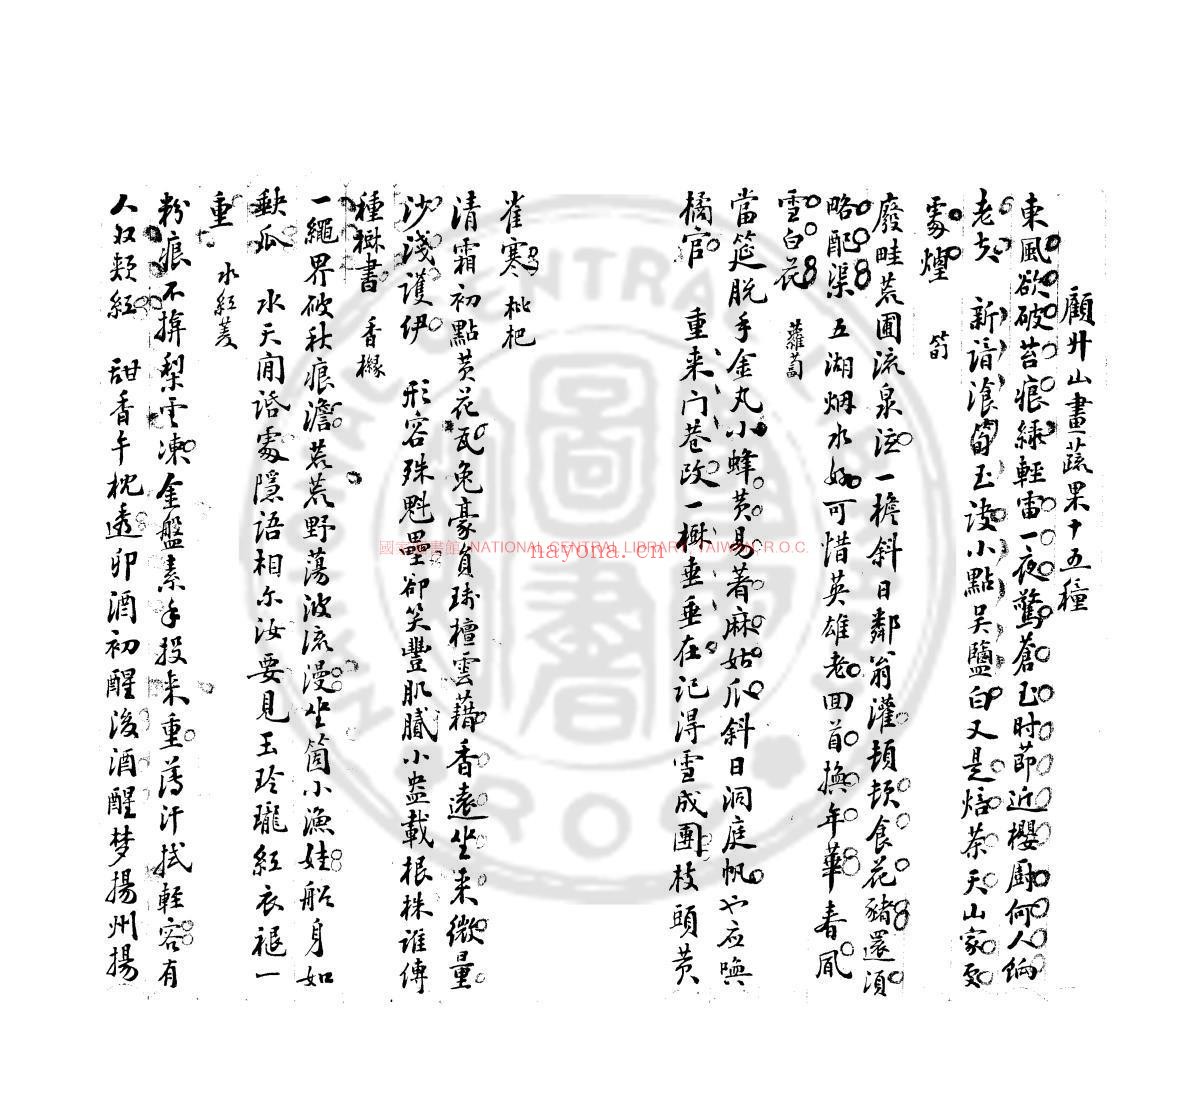 顧廾山畫蔬果十五種
東風欲破苔痕綠輕雷一夜驚蒼玉時節近櫻廚何人餉
老夫 新詩滄筍玉淡小點吳鹽白又是焙茶天山家更
雾煙 筍
廢畦荒圃流泉注一擔斜日鄰翁灌頓頓食花豬還須
略配渠 五湖烟水好可惜英雄老回首撫年華春風
雪白花 蘿蔔
當筵脫手金丸小蜂黃易著麻姑爪斜日洞庭帆也应喚
橘官 重来门巷改一樹垂垂在記得雪成團枝頭黃
雀寒 枇杷
清霜初點黃花瓦兔豪負珠檀雲藉香遠坐来微量
沙淺護伊 形容殊魁壘卻笑豐肌膩小盎載根株誰傳
種樹書 香櫞
一繩界破秋痕澹荒荒野蕩波流漫坐箇小漁娃船身如
缺瓜 水天閒話處隱語相尔汝要見玉玲瓏紅衣褪一
重 水紅菱
粉痕不拚梨雲凍金盤素手投来重薄汗拭輕容有
人双頰紅 甜香午枕透卯酒初醒後酒醒梦揚州揚
國家圖書館 NATIONAL CENTRAL LIBRARY, TAIWAN, R.O.C.
nayona.cn